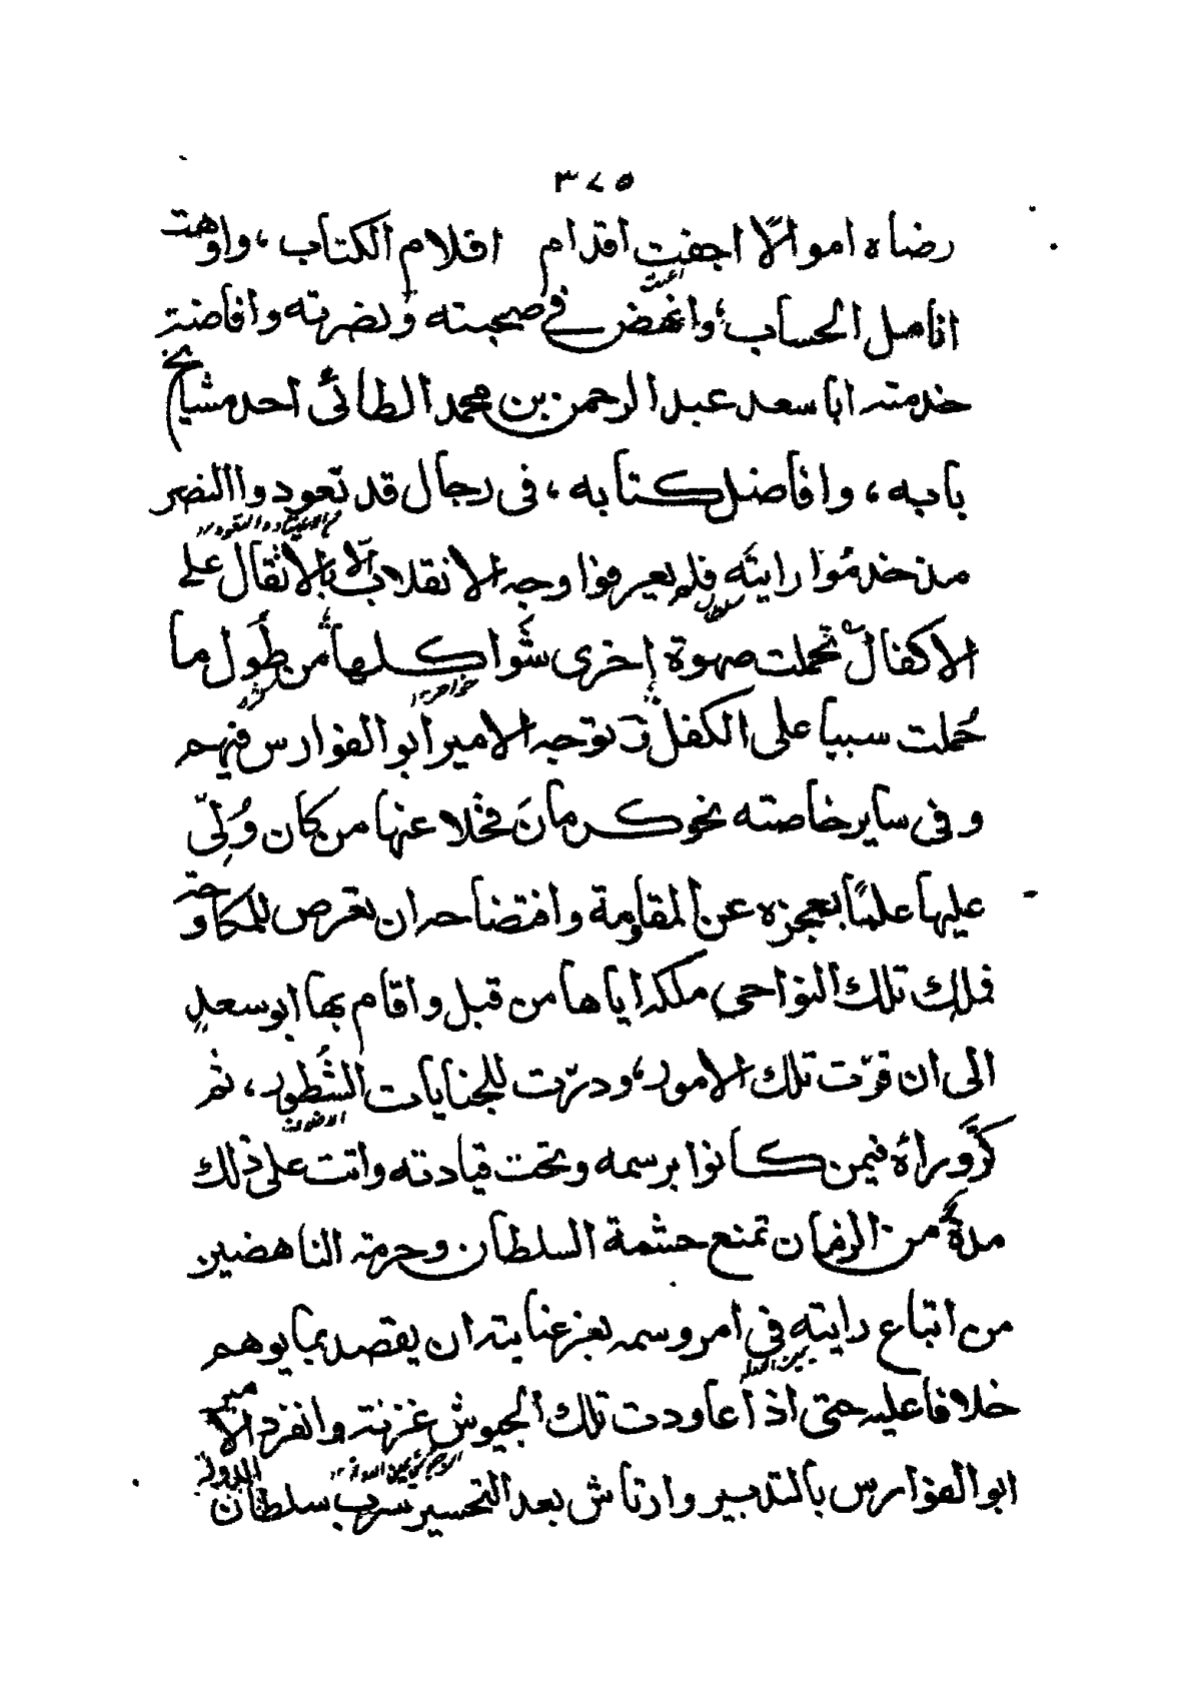 ٣٧٥
رضاه اموالًا اجفت اقدام اقلام الكتاب، واوهت
انامل الحساب، وانهض فى صحبته ونصرته وافاضة
خدمته ابا سعد عبد الرحمن بن محمد الطائى احد مشايخ
بابه، وافاضل كتابه، فى رجال قد تعودوا النصر
مذ خدموا رايته فلم يعرفوا وجه الانقلاب الّا بالانقال على
الاكفال تحملت صهوة اخرى شواكلها من طول ما
حُملت سبيا على الكفل وتوجه الامير ابو الفوارس فيهم
وفى ساير خاصته نحو كرمان فخلا عنها من كان وُلِّى
عليها علمًا بعجزه عن المقاومة وافتضاحه ان تعرض للمكاوحة
فملك تلك النواحى ملكه اياها من قبل واقام بها ابو سعد
الى ان قرّت تلك الامور، ودرّت للجنايات الشُطور، ثم
كرَّ وراءه فيمن كانوا برسمه وتحت قيادته واتت على ذلك
مدة من الزمان تمنع حشمة السلطان وحرمة الناهضين
من اتباع رايته فى امر وسمه بعز عنايته ان يقصد بما يوهم
خلافا عليه حتى اذا عاودت تلك الجيوش غزنة وانفرد الامير
ابو الفوارس بالتدبير وارتاش بعد التحسير سرب سلطان الدولة